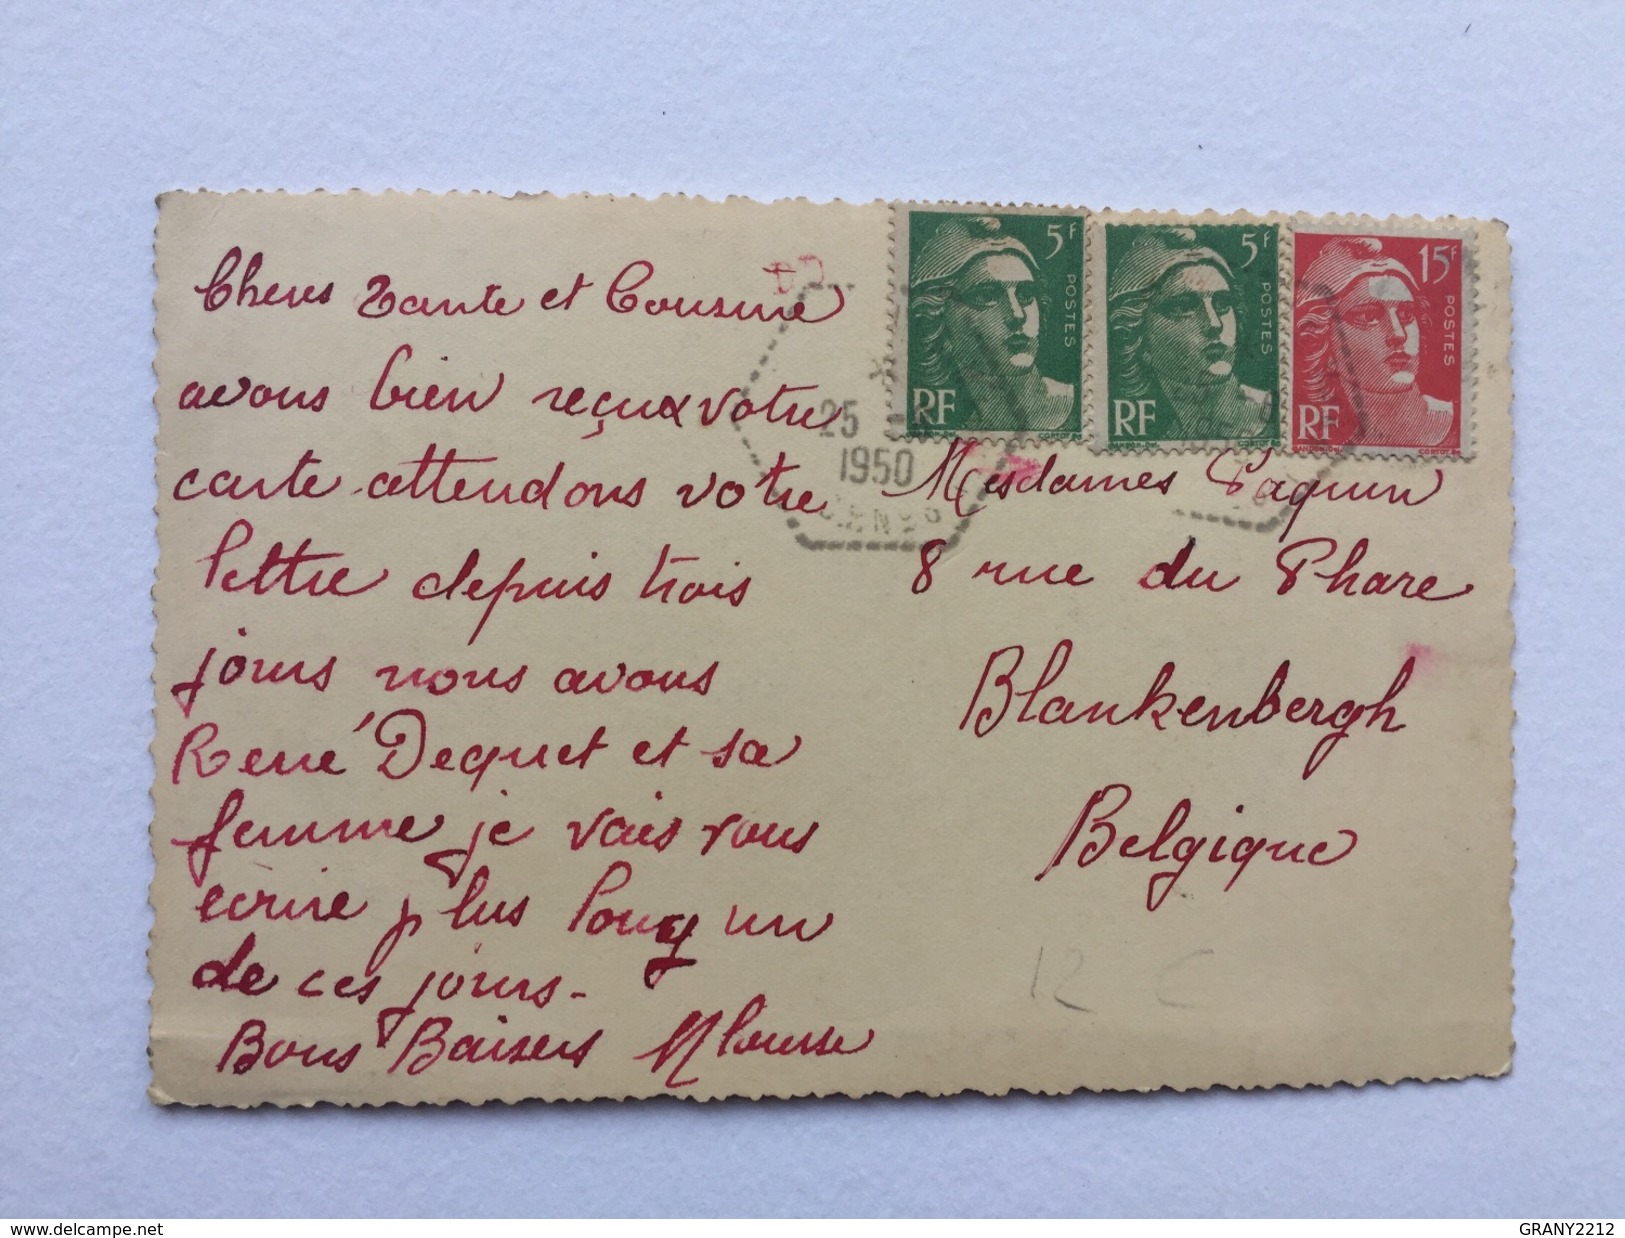 Cheres Tante et Cousine
avons bien reçu votre
carte attendons votre
lettre depuis trois
jours nous avons
René Dequet et sa
femme je vais vous
écrire plus long un
de ces jours.
Bons Baisers Mlouise
5f
POSTES
RF
5f
POSTES
RF
15f
POSTES
RF
25
1950
Mesdames Paquin
8 rue du Phare
Blankenbergh
Belgique
12 C
delcampe.net
GRANY2212